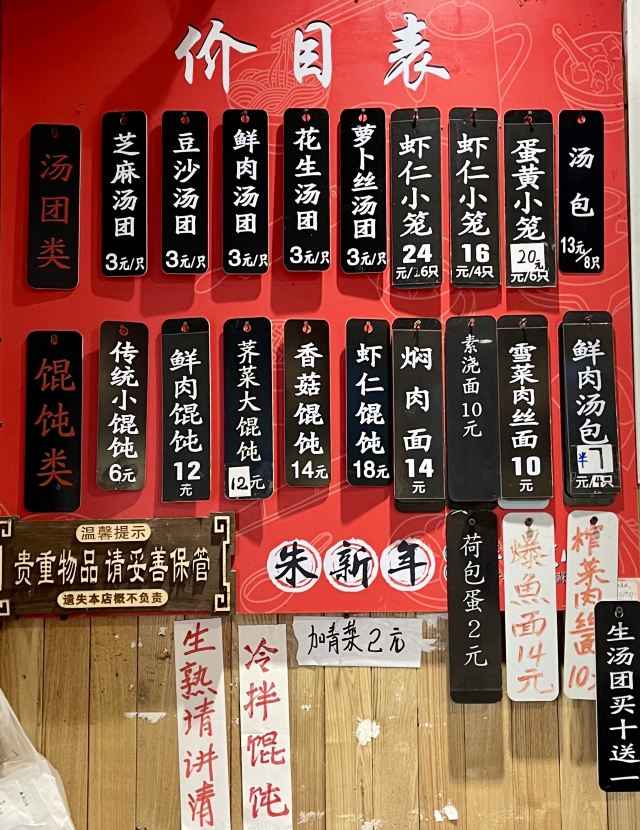 价目表
汤团类
芝麻汤团
3元/只
豆沙汤团
3元/只
鲜肉汤团
3元/只
花生汤团
3元/只
萝卜丝汤团
3元/只
虾仁小笼
24
元/16只
虾仁小笼
16
元/4只
蛋黄小笼
20元
元/6只
汤包
13元/8只
馄饨类
传统小馄饨
6元
鲜肉馄饨
12
元
荠菜大馄饨
12元
香菇馄饨
14元
虾仁馄饨
18元
焖肉面
14
元
素浇面10元
雪菜肉丝面
10
元
鲜肉汤包
半7
元/4只
温馨提示
贵重物品 请妥善保管
遗失本店概不负责
朱新年
荷包蛋2元
爆鱼面14元
榨菜肉丝面10元
生汤团买十送一
生熟请讲清
冷拌馄饨
加青菜2元